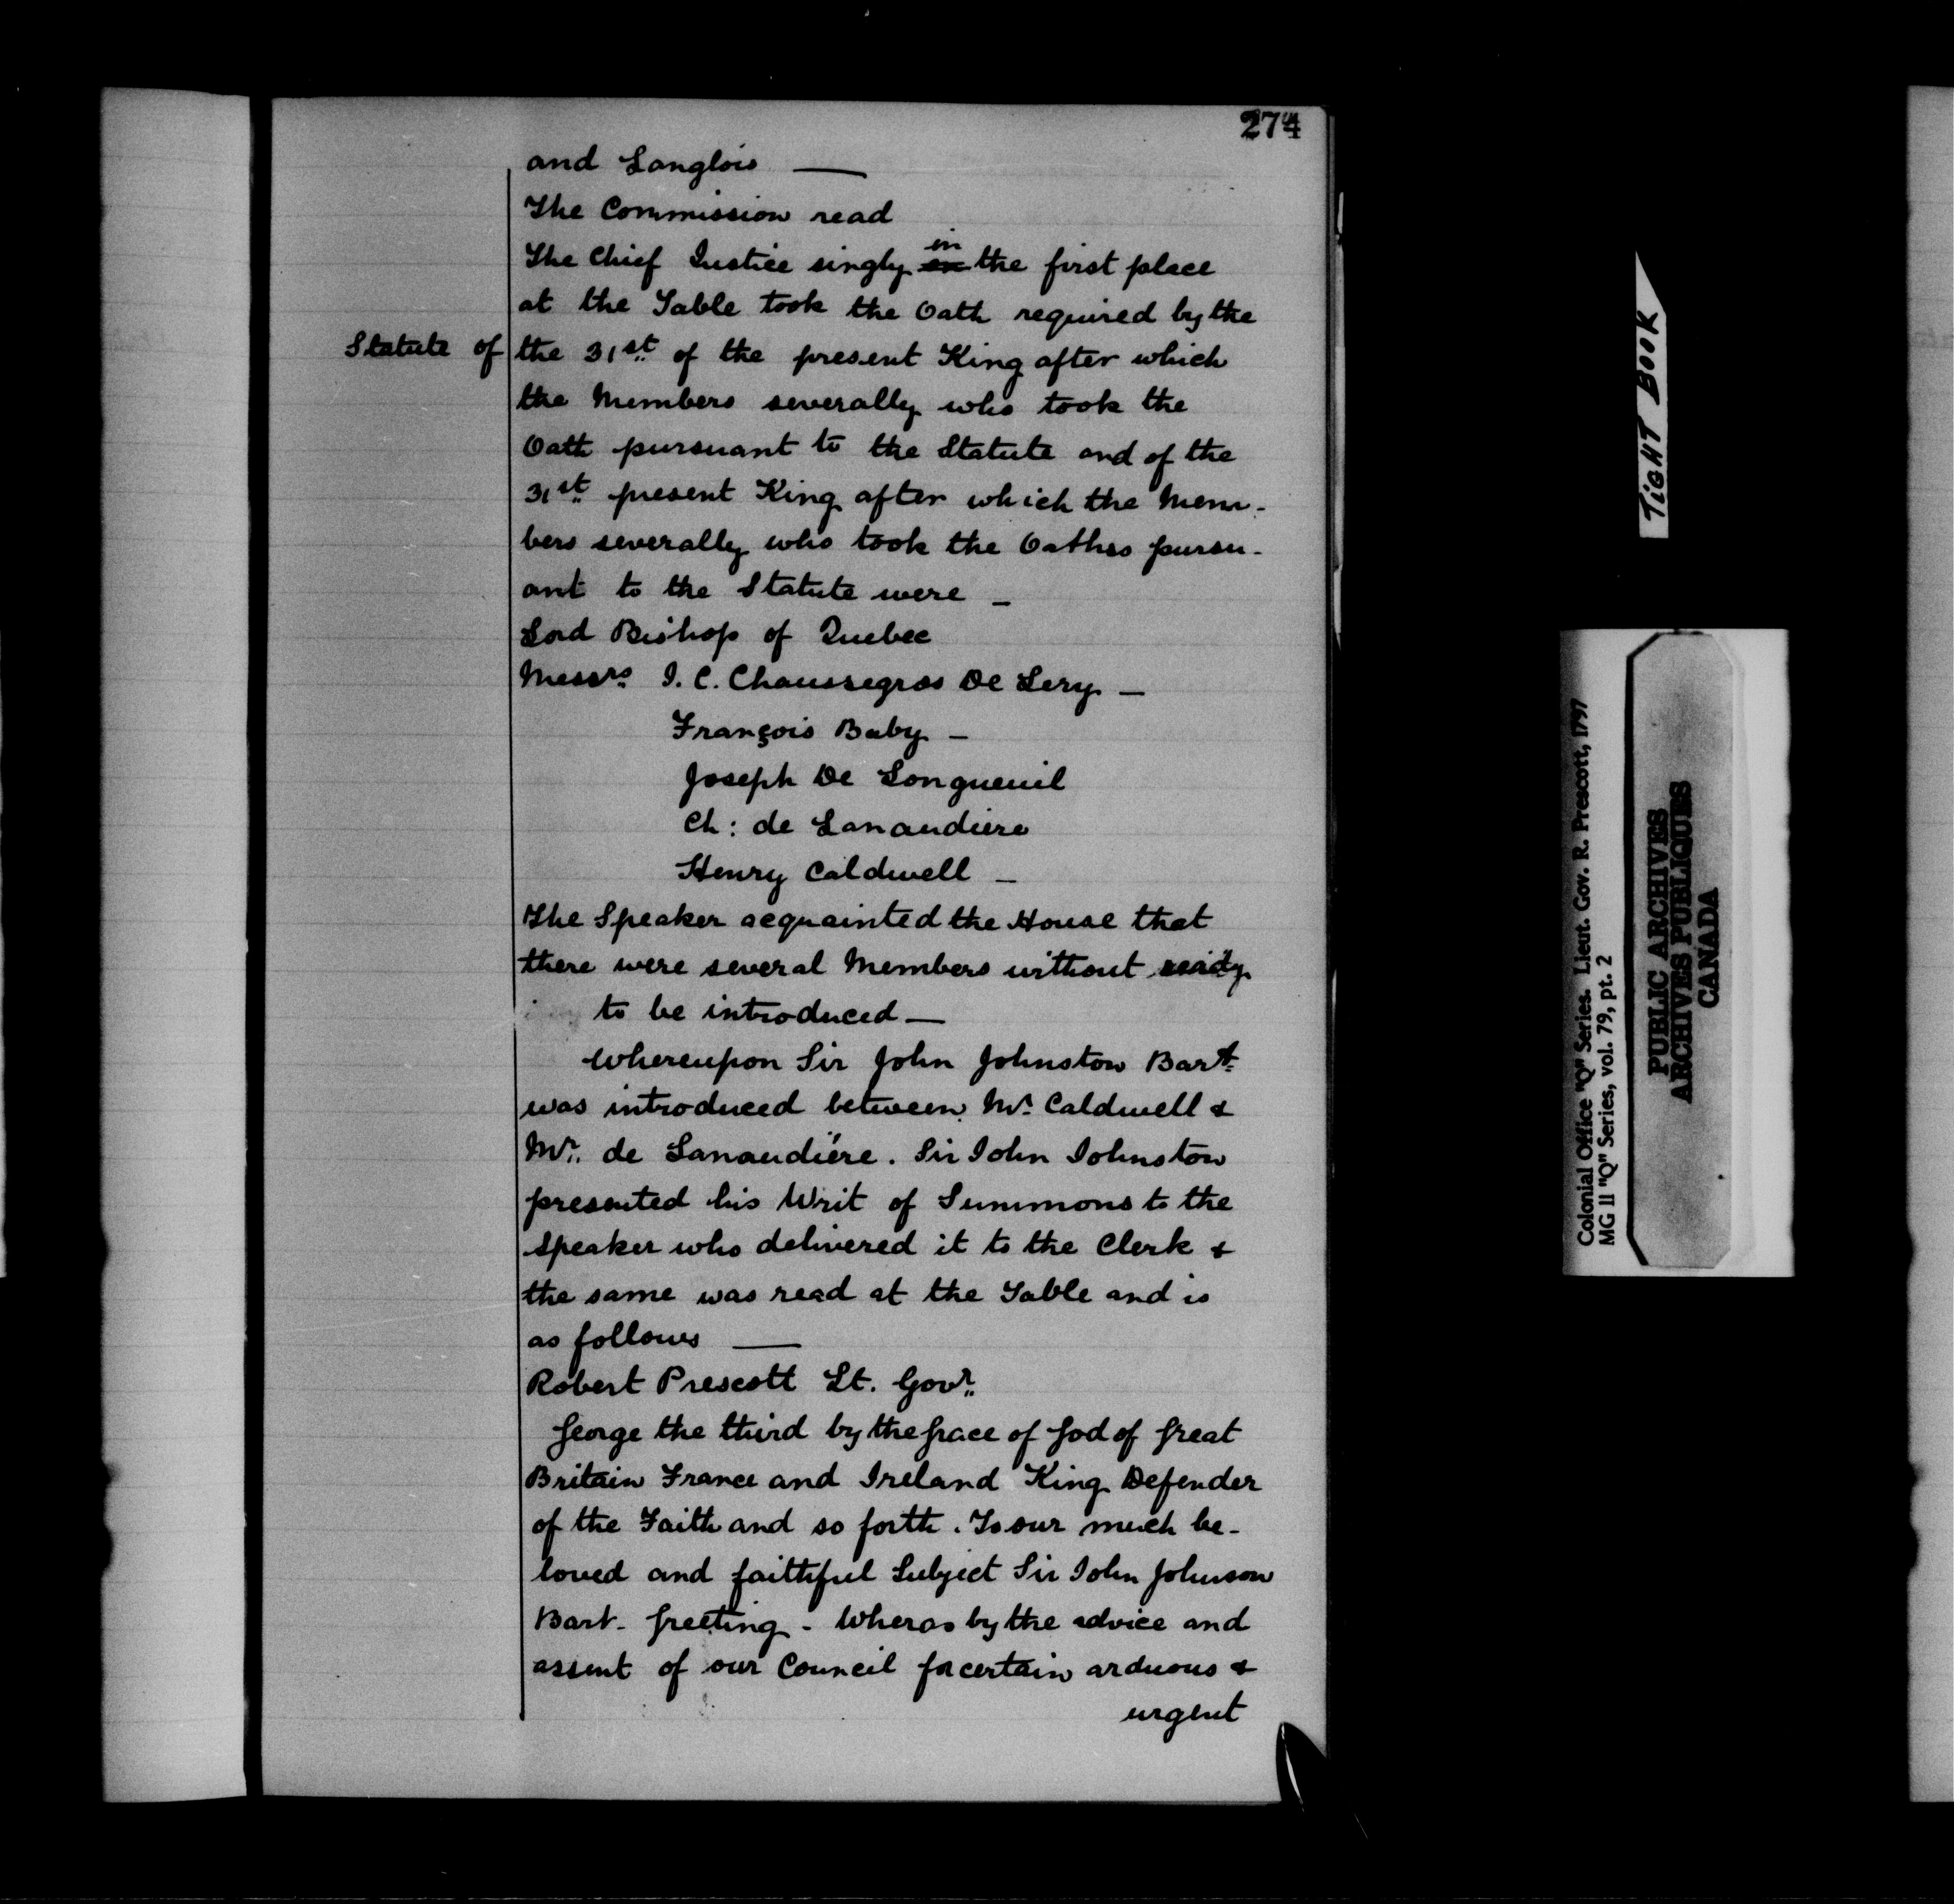 274
and Langlois —
The Commission read
The Chief Justice singly in the first place
at the Table took the Oath required by the
Statute of the 31st of the present King after which
the Members severally who took the
Oath pursuant to the Statute and of the
31st present King after which the Mem-
bers severally who took the Oathes pursu-
ant to the Statute were —
Lord Bishop of Quebec
Messrs I. C. Chaussegros De Lery —
François Baby —
Joseph De Longueuil
Ch: de Lanaudiere
Henry Caldwell —
The Speaker acquainted the House that
there were several Members without ready
to be introduced —
Whereupon Sir John Johnston Bart
was introduced between Mr. Caldwell &
Mr. de Lanaudiére. Sir John Johnston
presented his Writ of Summons to the
Speaker who delivered it to the Clerk &
the same was read at the Table and is
as follows —
Robert Prescott Lt. Govr.
George the third by the grace of God of Great
Britain France and Ireland King Defender
of the Faith and so forth. To our much be-
loved and faithful Subject Sir John Johnson
Bart- Greeting - Wheras by the advice and
assent of our Council for certain arduous &
urgent
TiGHT BOOK
Colonial Office "Q" Series. Lieut. Gov. R. Prescott, 1797
MG II "Q" Series, vol. 79, pt. 2
PUBLIC ARCHIVES
ARCHIVES PUBLIQUES
CANADA